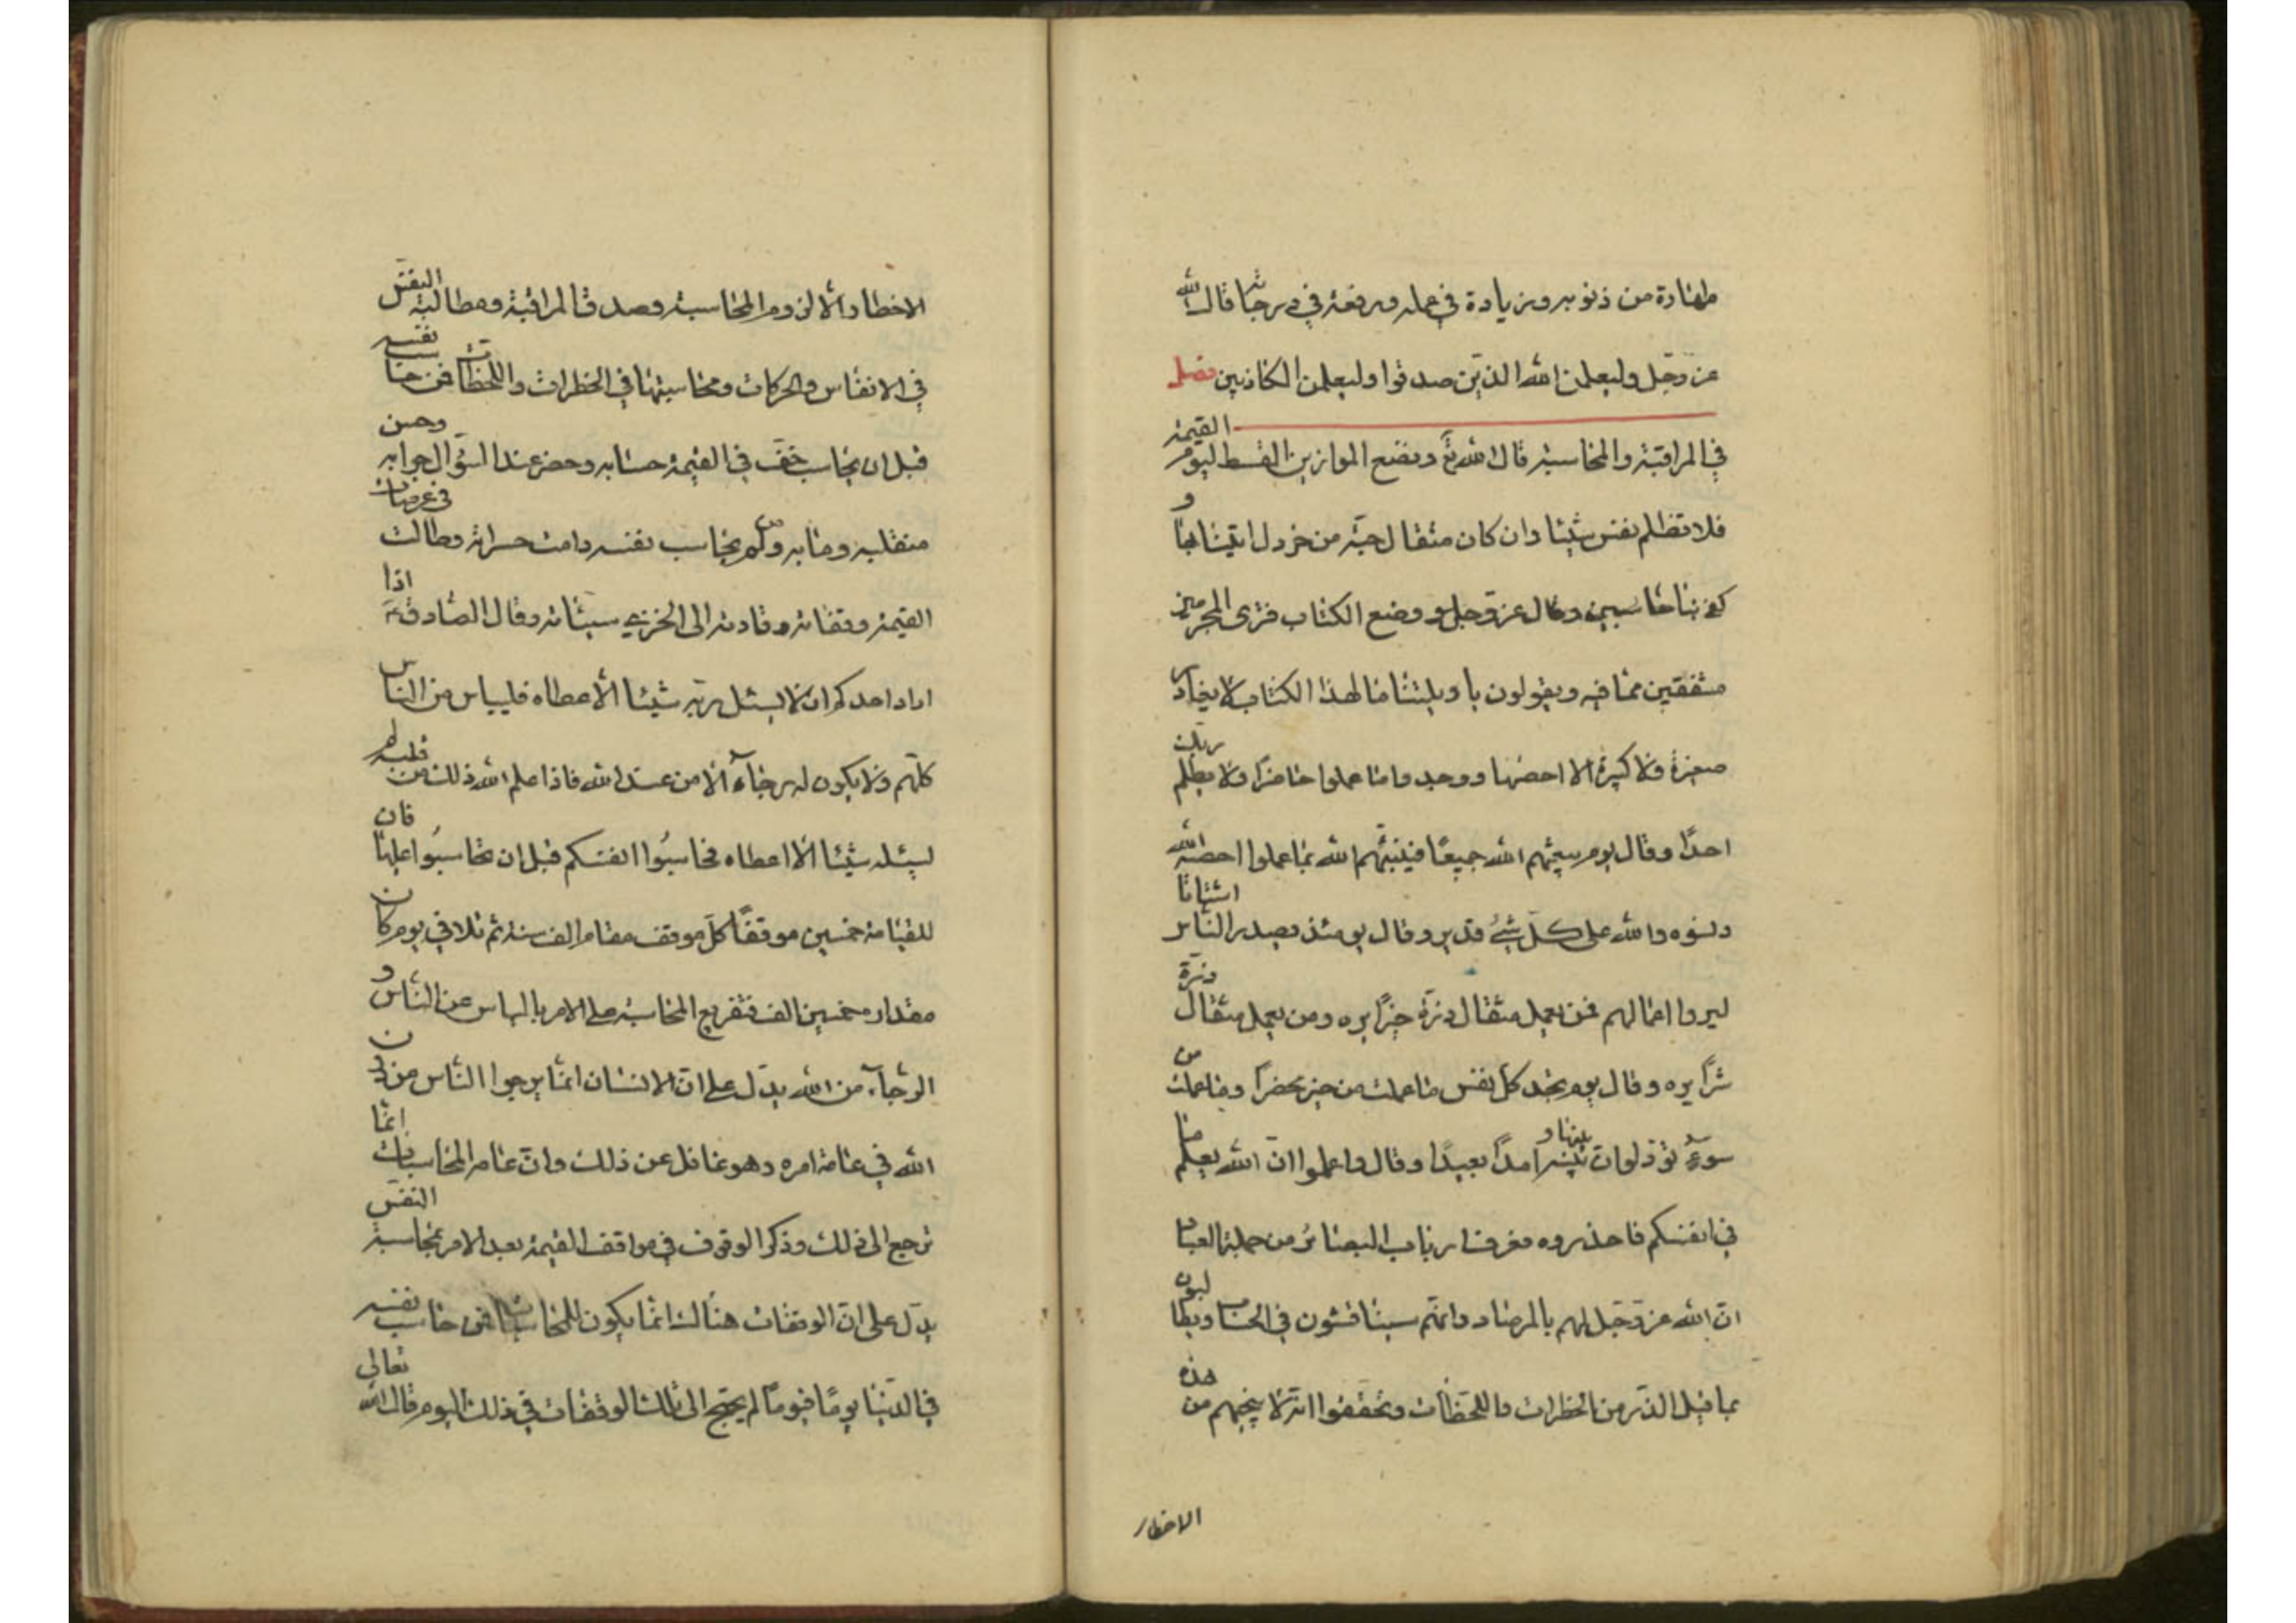 طهارة من ذنوبه وزيادة في عمله ورفعة في درجاته قال الله
عز وجل وليعلمن الله الذين صدقوا وليعلمن الكاذبين فصل
في المراقبة والمحاسبة قال الله تع ونضع الموازين القسط ليوم القيمة
فلا تظلم نفس شيئا وان كان مثقال حبة من خردل اتينا بها و
كفى بنا حاسبين وقال عز وجل و وضع الكتاب فترى المجرمين
مشفقين مما فيه ويقولون يا ويلتنا ما لهذا الكتاب لا يغادر
صغيرة ولا كبيرة الا احصيها ووجدوا ما عملوا حاضرا ولا يظلم ربك
احدا وقال يوم يبعثهم الله جميعا فينبئهم الله بما عملوا احصيه الله
ونسوه والله على كل شئ قدير وقال يومئذ يصدر الناس اشتاتا
ليروا اعمالهم فمن يعمل مثقال ذرة خيرا يره ومن يعمل مثقال ذرة
شرا يره وقال يوم تجد كل نفس ما عملت من خير محضرا وما عملت من
سوء تود لو ان بينها و بينه امدا بعيدا وقال واعلموا ان الله يعلم ما
في انفسكم فاحذروه فعرف ارباب البصائر من جملة العباد
ان الله عز وجل لهم بالمرصاد وانهم سيناقشون في الحساب ويطالبون
بما قبل الذر من الخطرات واللحظات وتحققوا انه لا ينجيهم من هذه
الاخطار
الاخطار الا لزوم المحاسبة وصدق المراقبة ومطالبة النفس
في الانفاس والحركات ومحاسبتها في الخطرات واللحظات فمن حاسب نفسه
قبل ان يحاسب خف في القيمة حسابه وحضر عند السؤال جوابه وحسن
منقلبه ومابه ومن لم يحاسب نفسه دامت حسراته وطالت في عرصات
القيمة وقفاته وقادته الى الخزي سيئاته وقال الصادق ع اذا
اراد احدكم ان لا يسئل ربه شيئا الا اعطاه فليياس من الناس
كلهم ولا يكون له رجاء الا من عند الله فاذا علم الله ذلك من قلبه لم
يسئله شيئا الا اعطاه فحاسبوا انفسكم قبل ان تحاسبوا عليها فان
للقيامة خمسين موقفا كل موقف مقام الف سنة ثم تلا في يوم كان
مقداره خمسين الف فتفريع المحاسبة على الامر بالياس عن الناس و
الرجاء من الله يدل على ان الانسان انما يرجوا الناس من دون
الله في عامة امره وهو غافل عن ذلك وان عامة المحاسبات انما
ترجع الى ذلك وذكر الوقوف في مواقف القيمة بعد الامر بمحاسبة النفس
يدل على ان الوقفات هناك انما يكون للمحاسبات فمن حاسب نفسه
في الدنيا يوما فيوما لم يحتج الى تلك الوقفات في ذلك اليوم قال الله تعالى